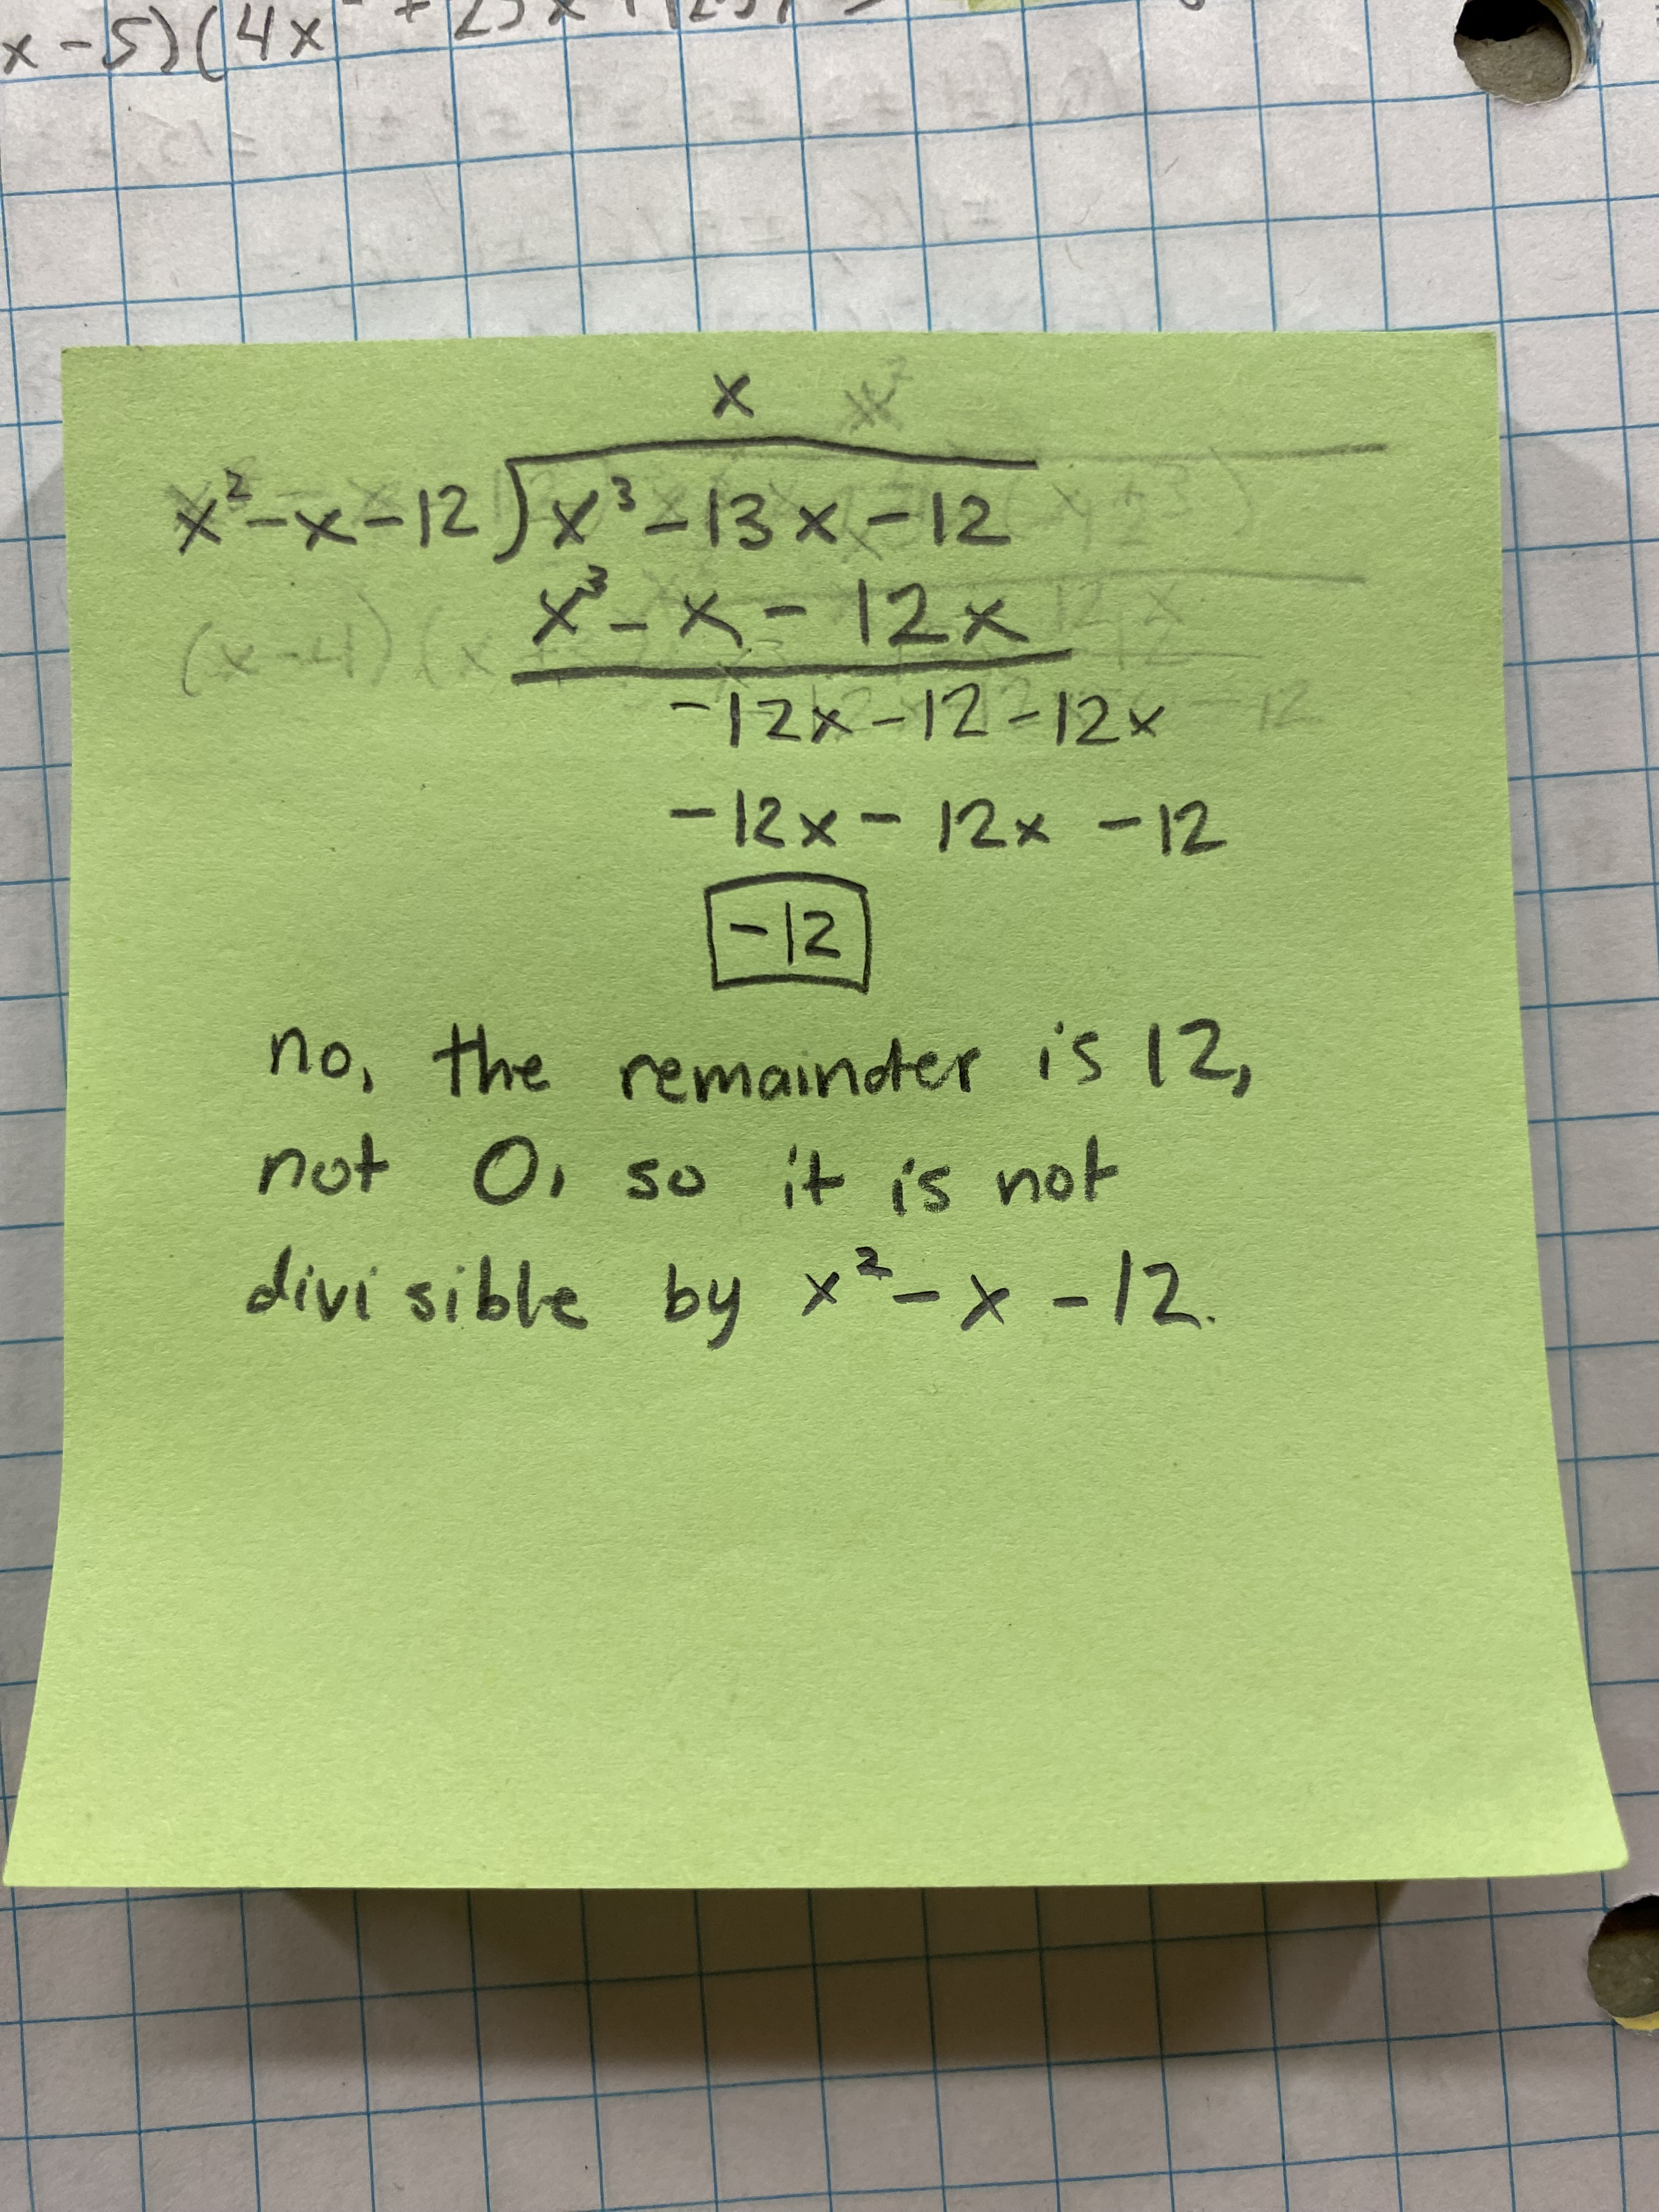 x-5)(4x
x
x² - x - 12 ) x³ - 13x - 12
x³ - x - 12x
-12x - 12 - 12x
-12x - 12x - 12
-12
no, the remainder is 12,
not 0, so it is not
divisible by x² - x - 12.